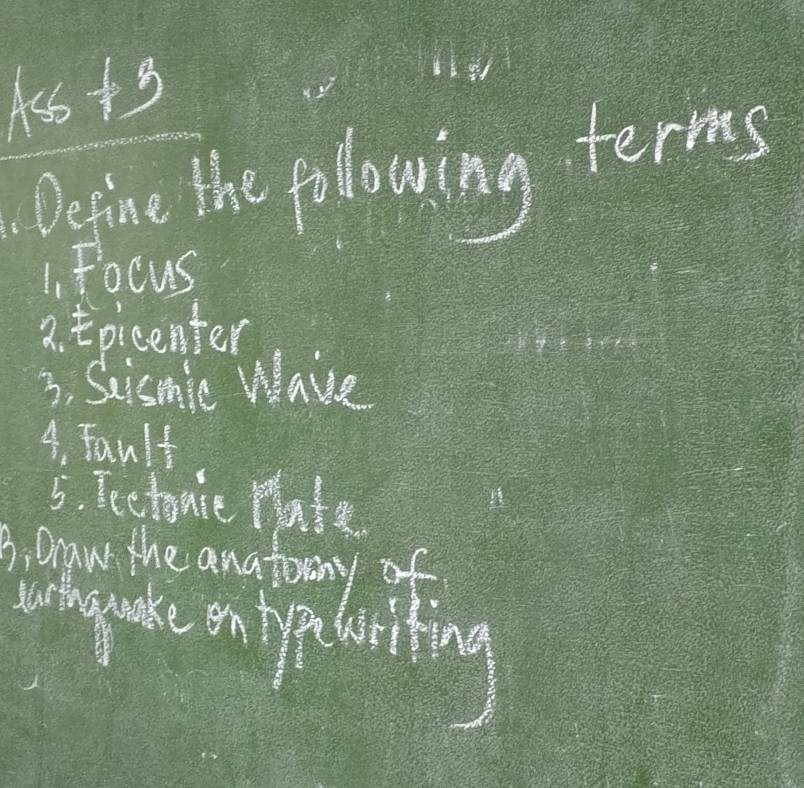 Ass # 3
A. Define the following terms
1. Focus
2. Epicenter
3. Seismic Wave
4. Fault
5. Tectonic Plate
B. Draw the anatomy of
earthquake on typewriting